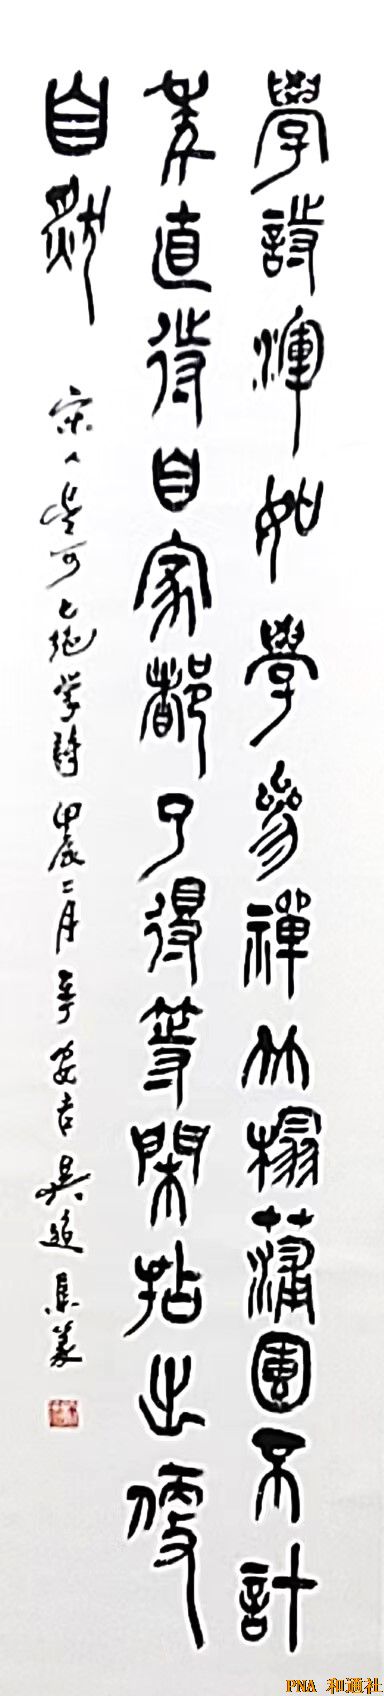 學詩渾如學參禪竹榻蒲團不計
年直待自家都了得等閑拈出便
自然
宋人吳可七絕學詩 甲辰二月 安吉吳
PNA 和通社